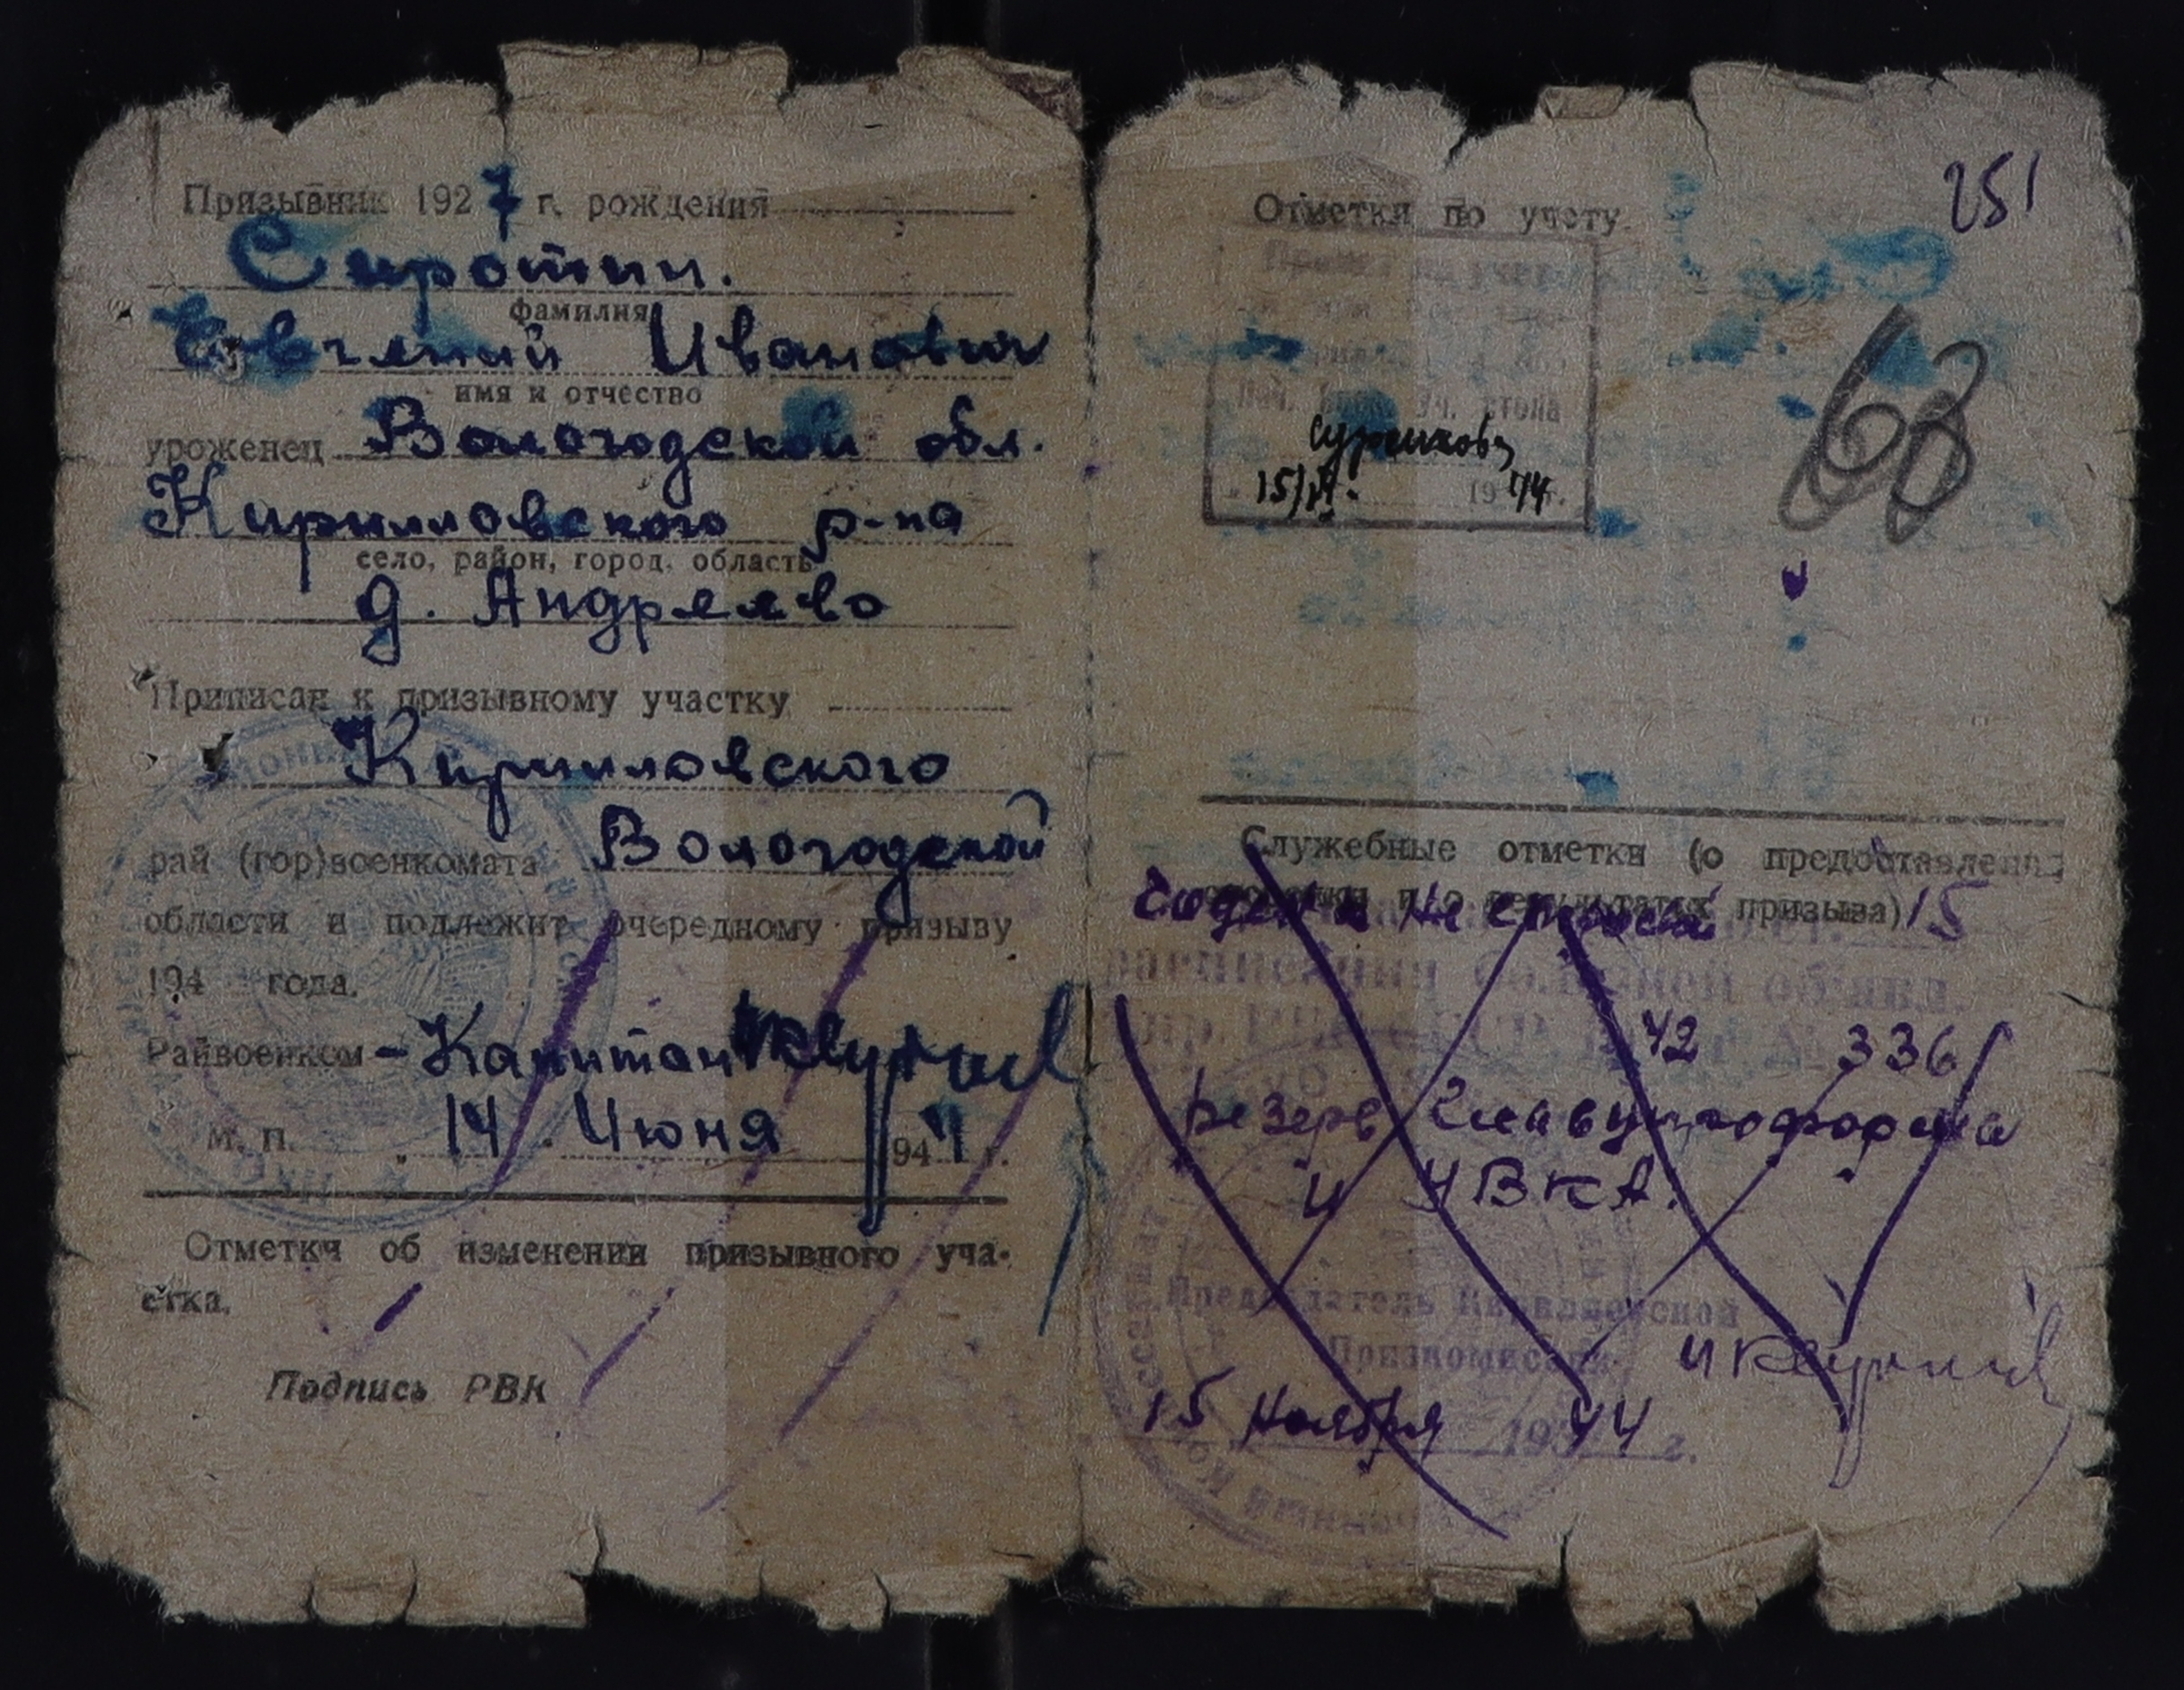 Призывник 1927 г. рождения
Сиротин.
фамилия
Евгений Иванович
имя и отчество
уроженец Вологодской обл.
Кирилловского р-на
село, район, город, область
д. Андреево
Приписан к призывному участку
Кирилловского
рай (гор)военкомата Вологодской
области и подлежит очередному призыву
194 года.
Райвоенком - Капитан
М. П. 14 Июня 1944 г.
Отметки об изменении призывного уча-
стка.
Подпись РВК
251
Отметки по учету
63
15/VI. 1944 г.
Служебные отметки (о предоставлении
отсрочки и о результатах призыва)
Годен к не строевой 15
42 336
резерв Главупроформа
и УВКА.
Председатель Кирилловской
Призкомиссии
15 Ноября 1944 г.